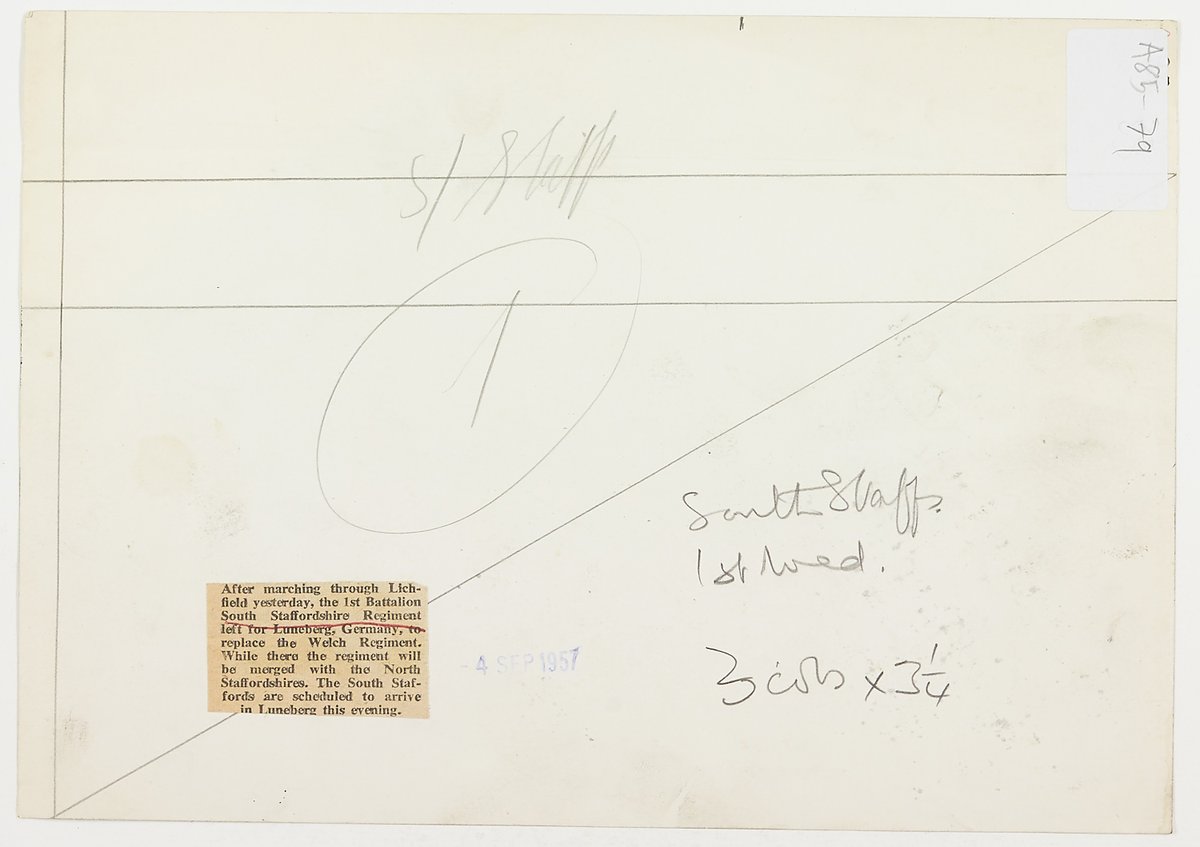 A85-79
S/ Staff
1
South Staffs.
1st Wed.
After marching through Lich-
field yesterday, the 1st Battalion
South Staffordshire Regiment
left for Luneberg, Germany, to
replace the Welch Regiment.
While there the regiment will
be merged with the North
Staffordshires. The South Staf-
fords are scheduled to arrive
in Luneberg this evening.
- 4 SEP 1957
3 cols x 3 1/4